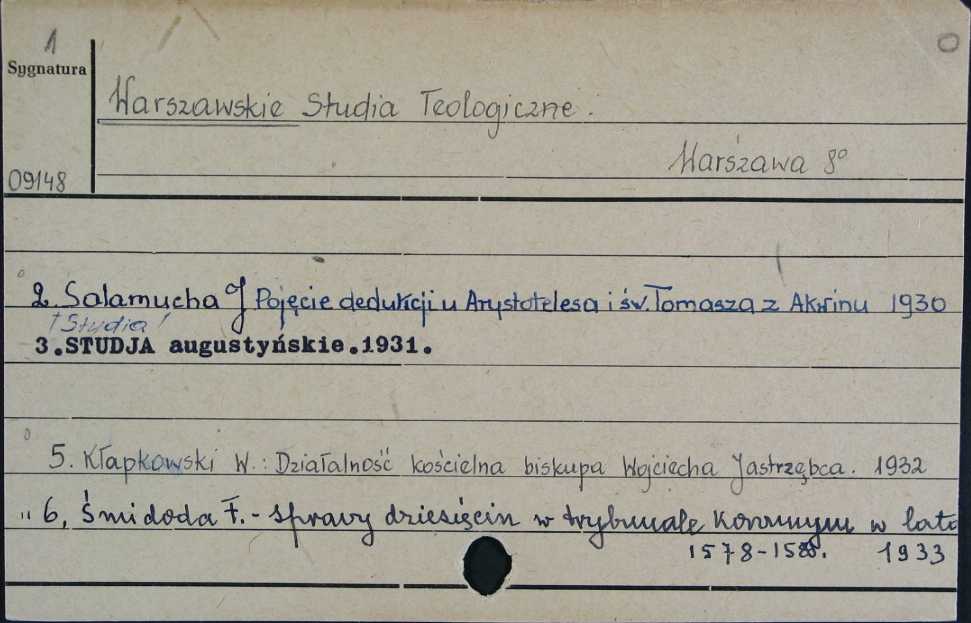 1
Sygnatura
0
Warszawskie Studia Teologiczne.
Warszawa 8°
09148
2. Salamucha J Pojęcie dedukcji u Arystotelesa i św. Tomasza z Akwinu 1930
/Studia/
3.STUDJA augustyńskie.1931.
5. Kłapkowski W.: Działalność kościelna biskupa Wojciecha Jastrzębca. 1932
" 6. Śmidoda F. - sprawy dziesięcin w trybunale Koronnym w lata
1578-1588. 1933